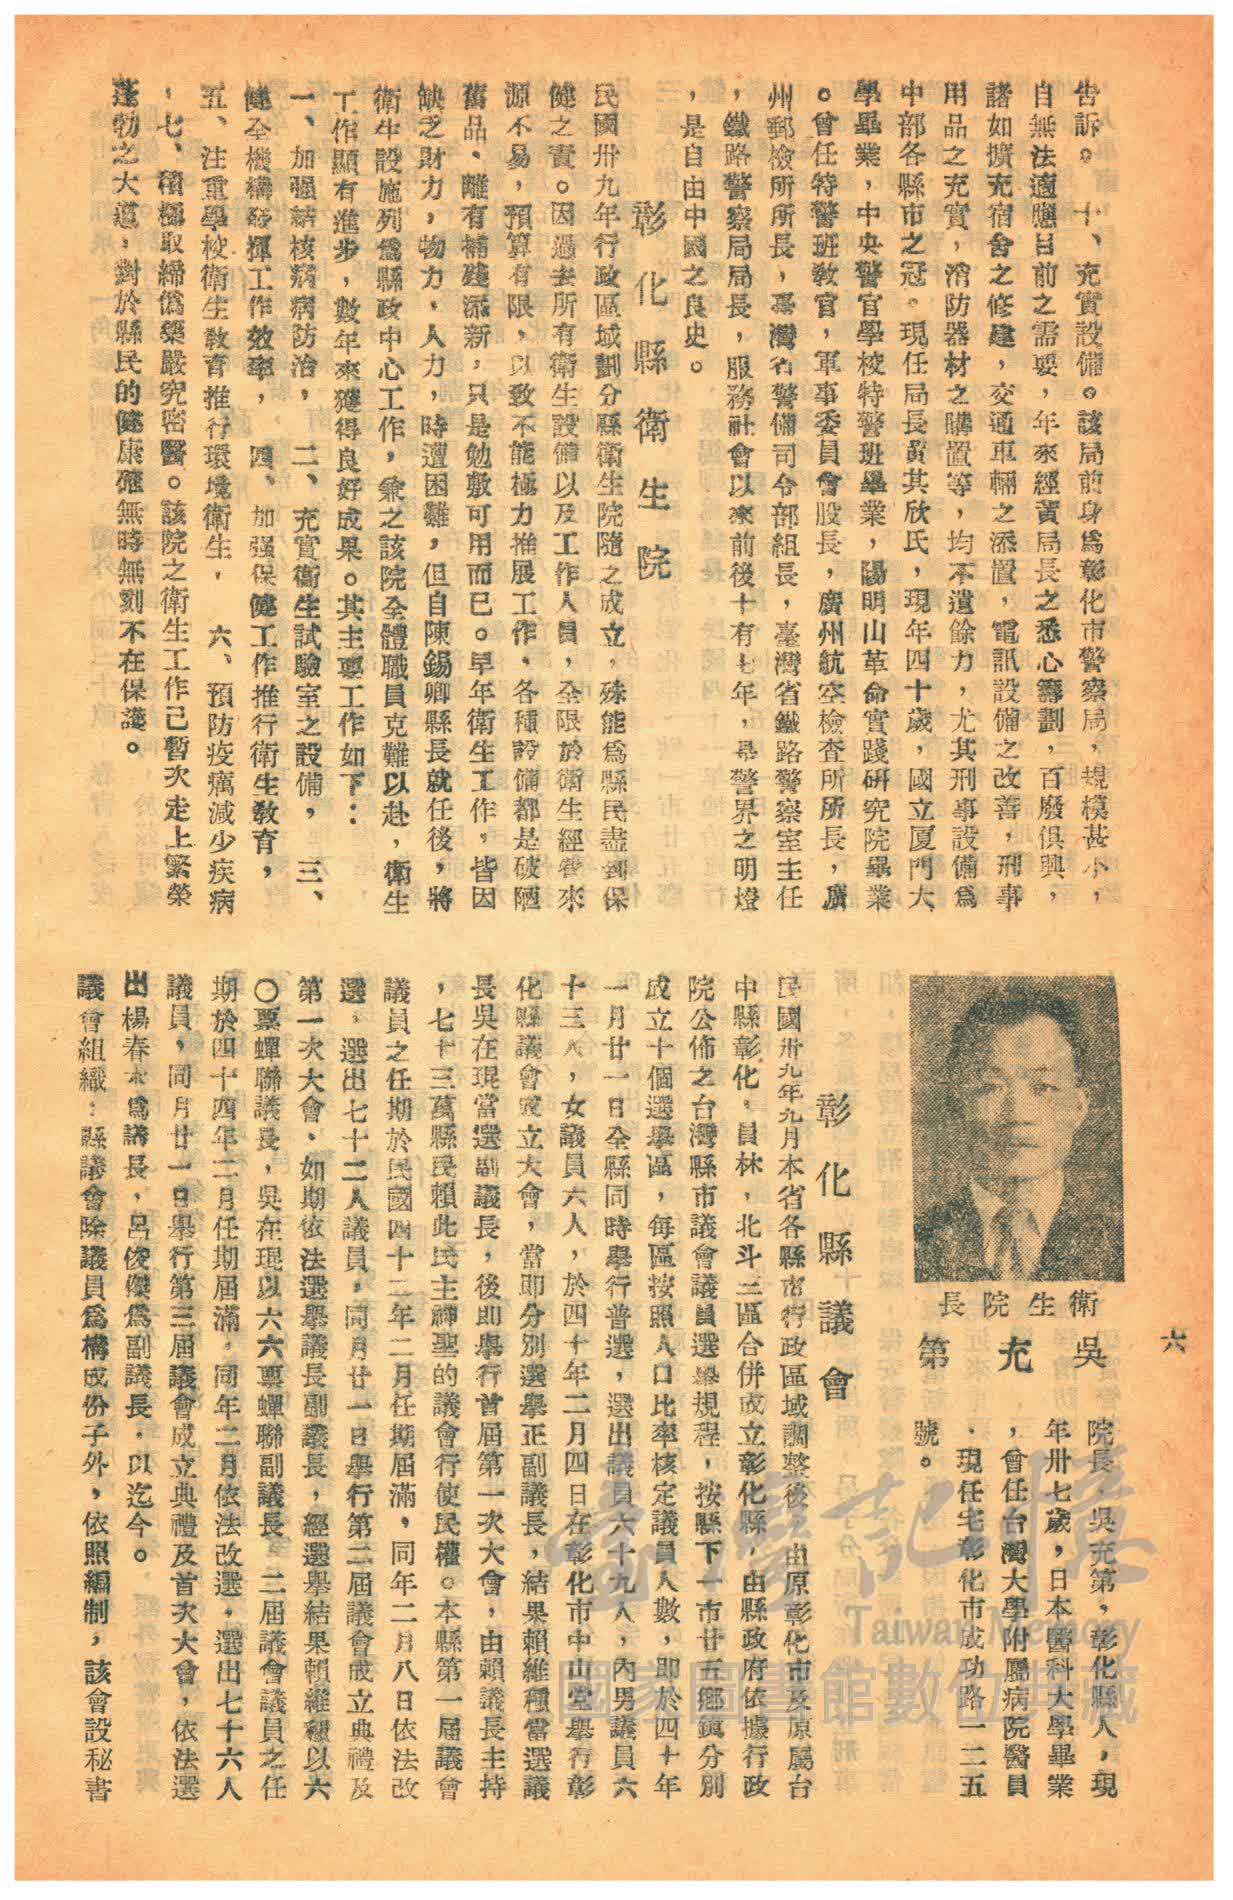 告訴。　十、充實設備。該局前身爲彰化市警察局，規模甚小，
自無法適應目前之需要，年來經黃局長之悉心籌劃，百廢俱興，
諸如擴充宿舍之修建，交通車輛之添置，電訊設備之改善，刑事
用品之充實，消防器材之購置等，均不遺餘力，尤其刑事設備爲
中部各縣市之冠。現任局長黃其欣氏，現年四十歲，國立厦門大
學畢業，中央警官學校特警班畢業，陽明山革命實踐研究院畢業
。曾任特警班敎官，軍事委員會股長，廣州航空檢查所所長，廣
州郵檢所所長，臺灣省警備司令部組長，臺灣省鐵路警察室主任
，鐵路警察局局長，服務社會以來前後十有七年，是警界之明燈
，是自由中國之良史。
彰化縣衛生院
民國卅九年行政區域劃分縣衛生院隨之成立，殊能爲縣民盡到保
健之責。因過去所有衛生設備以及工作人員，全限於衛生經費來
源不易，預算有限，以致不能極力推展工作、各種設備都是破陋
舊品、雖有補殘添新，只是勉敷可用而已。早年衛生工作，皆因
缺乏財力，物力，人力，時遭困難，但自陳錫卿縣長就任後，將
衛生設施列爲縣政中心工作，兼之該院全體職員克難以赴，衛生
工作顯有進步，數年來獲得良好成果。其主要工作如下：
一、加强結核病病防治，　二、充實衛生試驗室之設備，　三、
健全機構發揮工作效率，　四、加强保健工作推行衛生敎育，
五、注重學校衛生敎育推行環境衛生，　六、預防疫癘減少疾病
，七、積極取締僞藥嚴究密醫。該院之衛生工作已暫次走上繁榮
蓬勃之大道，對於縣民的健康確無時無刻不在保護。
六
衛生院長
吳充第
院長，吳充第，彰化縣人，現
年卅七歲，日本醫科大學畢業
，曾任台灣大學附屬病院醫員
，現任宅彰化市成功路一二五
號。
彰化縣議會
民國卅九年九月本省各縣市行政區域調整後，由原彰化市及原屬台
中縣彰化，員林，北斗三區合併成立彰化縣，由縣政府依據行政
院公佈之台灣縣市議會議員選舉規程，按縣下一市廿五鄉鎮分別
成立十個選舉區，每區按照人口比率核定議員人數，即於四十年
一月廿一日全縣同時舉行普選，選出議員六十九人，內男議員六
十三人，女議員六人，於四十年二月四日在彰化市中山堂舉行彰
化縣議會成立大會，當即分別選舉正副議長，結果賴維種當選議
長吳在琨當選副議長，後即舉行首屆第一次大會，由賴議長主持
，七十三萬縣民賴此民主神聖的議會行使民權。本縣第一屆議會
議員之任期於民國四十二年二月任期屆滿，同年二月八日依法改
選，選出七十二人議員，同月廿一日舉行第二屆議會成立典禮及
第一次大會、如期依法選舉議長副議長，經選舉結果賴維種以六
〇票蟬聯議長，吳在琨以六六票蟬聯副議長、二屆議會議員之任
期於四十四年二月任期屆滿，同年二月依法改選，選出七十六人
議員，同月廿一日舉行第三屆議會成立典禮及首次大會，依法選
出楊春木爲議長，呂俊傑爲副議長，以迄今。
議會組織：縣議會除議員爲構成份子外，依照編制，該會設秘書
臺灣記憶
Taiwan Memory
國家圖書館數位典藏